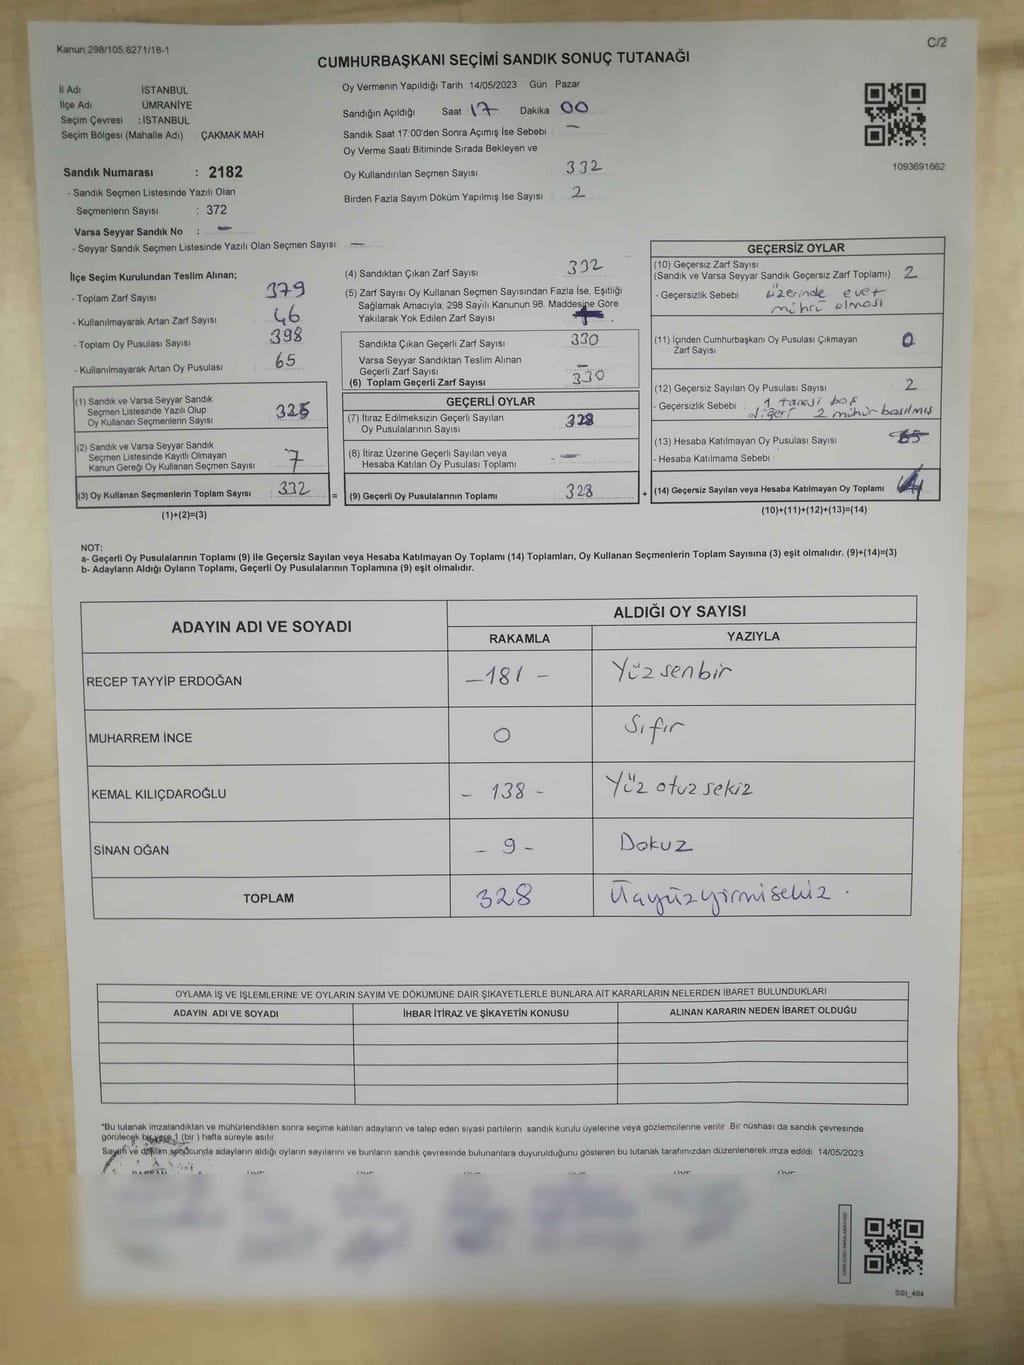 Kanun 298/105,6271/18-1
C/2
CUMHURBAŞKANI SEÇİMİ SANDIK SONUÇ TUTANAĞI
İl Adı İSTANBUL
İlçe Adı ÜMRANİYE
Seçim Çevresi : İSTANBUL
Seçim Bölgesi (Mahalle Adı) ÇAKMAK MAH
Oy Vermenin Yapıldığı Tarih 14/05/2023 Gün Pazar
Sandığın Açıldığı Saat 17 Dakika 00
Sandık Saat 17:00'den Sonra Açımış İse Sebebi : —
Oy Verme Saati Bitiminde Sırada Bekleyen ve
Oy Kullandırılan Seçmen Sayısı : 332
Birden Fazla Sayım Döküm Yapılmış İse Sayısı : 2
1093691662
Sandık Numarası : 2182
- Sandık Seçmen Listesinde Yazılı Olan
Seçmenlerin Sayısı : 372
Varsa Seyyar Sandık No : —
- Seyyar Sandık Seçmen Listesinde Yazılı Olan Seçmen Sayısı: —
İlçe Seçim Kurulundan Teslim Alınan;
- Toplam Zarf Sayısı 379
- Kullanılmayarak Artan Zarf Sayısı 46
- Toplam Oy Pusulası Sayısı 398
- Kullanılmayarak Artan Oy Pusulası 65
(1) Sandık ve Varsa Seyyar Sandık
Seçmen Listesinde Yazılı Olup
Oy Kullanan Seçmenlerin Sayısı : 325
(2) Sandık ve Varsa Seyyar Sandık
Seçmen Listesinde Kayıtlı Olmayan
Kanun Gereği Oy Kullanan Seçmen Sayısı : 7
(3) Oy Kullanan Seçmenlerin Toplam Sayısı : 332
(1)+(2)=(3)
(4) Sandıktan Çıkan Zarf Sayısı 332
(5) Zarf Sayısı Oy Kullanan Seçmen Sayısından Fazla İse, Eşitliği
Sağlamak Amacıyla; 298 Sayılı Kanunun 98. Maddesine Göre
Yakılarak Yok Edilen Zarf Sayısı
Sandıkta Çıkan Geçerli Zarf Sayısı 330
Varsa Seyyar Sandıktan Teslim Alınan
Geçerli Zarf Sayısı —
(6) Toplam Geçerli Zarf Sayısı 330
=
GEÇERLİ OYLAR
(7) İtiraz Edilmeksizin Geçerli Sayılan
Oy Pusulalarının Sayısı 328
(8) İtiraz Üzerine Geçerli Sayılan veya
Hesaba Katılan Oy Pusulası Toplamı : —
(9) Geçerli Oy Pusulalarının Toplamı : 328
+
GEÇERSİZ OYLAR
(10) Geçersiz Zarf Sayısı
(Sandık ve Varsa Seyyar Sandık Geçersiz Zarf Toplamı) 2
- Geçersizlik Sebebi : üzerinde evet
mührü olması
(11) İçinden Cumhurbaşkanı Oy Pusulası Çıkmayan
Zarf Sayısı 0
(12) Geçersiz Sayılan Oy Pusulası Sayısı 2
- Geçersizlik Sebebi : 1 tanesi boş
diğeri 2 mühür basılmış
(13) Hesaba Katılmayan Oy Pusulası Sayısı
- Hesaba Katılmama Sebebi :
(14) Geçersiz Sayılan veya Hesaba Katılmayan Oy Toplamı : 4
(10)+(11)+(12)+(13)=(14)
NOT:
a- Geçerli Oy Pusulalarının Toplamı (9) ile Geçersiz Sayılan veya Hesaba Katılmayan Oy Toplamı (14) Toplamları, Oy Kullanan Seçmenlerin Toplam Sayısına (3) eşit olmalıdır. (9)+(14)=(3)
b- Adayların Aldığı Oyların Toplamı, Geçerli Oy Pusulalarının Toplamına (9) eşit olmalıdır.
ADAYIN ADI VE SOYADI ALDIĞI OY SAYISI
RAKAMLA YAZIYLA
RECEP TAYYİP ERDOĞAN —181 - Yüz senbir
MUHARREM İNCE 0 Sıfır
KEMAL KILIÇDAROĞLU - 138 - Yüz otuz sekiz
SİNAN OĞAN - 9 - Dokuz
TOPLAM 328 Üçyüzyirmisekiz .
OYLAMA İŞ VE İŞLEMLERİNE VE OYLARIN SAYIM VE DÖKÜMÜNE DAİR ŞİKAYETLERLE BUNLARA AİT KARARLARIN NELERDEN İBARET BULUNDUKLARI
ADAYIN ADI VE SOYADI İHBAR İTİRAZ VE ŞİKAYETİN KONUSU ALINAN KARARIN NEDEN İBARET OLDUĞU
*Bu tutanak imzalandıktan ve mühürlendikten sonra seçime katılan adayların ve talep eden siyasi partilerin sandık kurulu üyelerine veya gözlemcilerine verilir. Bir nüshası da sandık çevresinde
görülecek bir yere 1 (bir) hafta süreyle asılır.
Sayım ve döküm sonucunda adayların aldığı oyların sayılarını ve bunların sandık çevresinde bulunanlara duyurulduğunu gösteren bu tutanak tarafımızdan düzenlenerek imza edildi. 14/05/2023
SSI_404